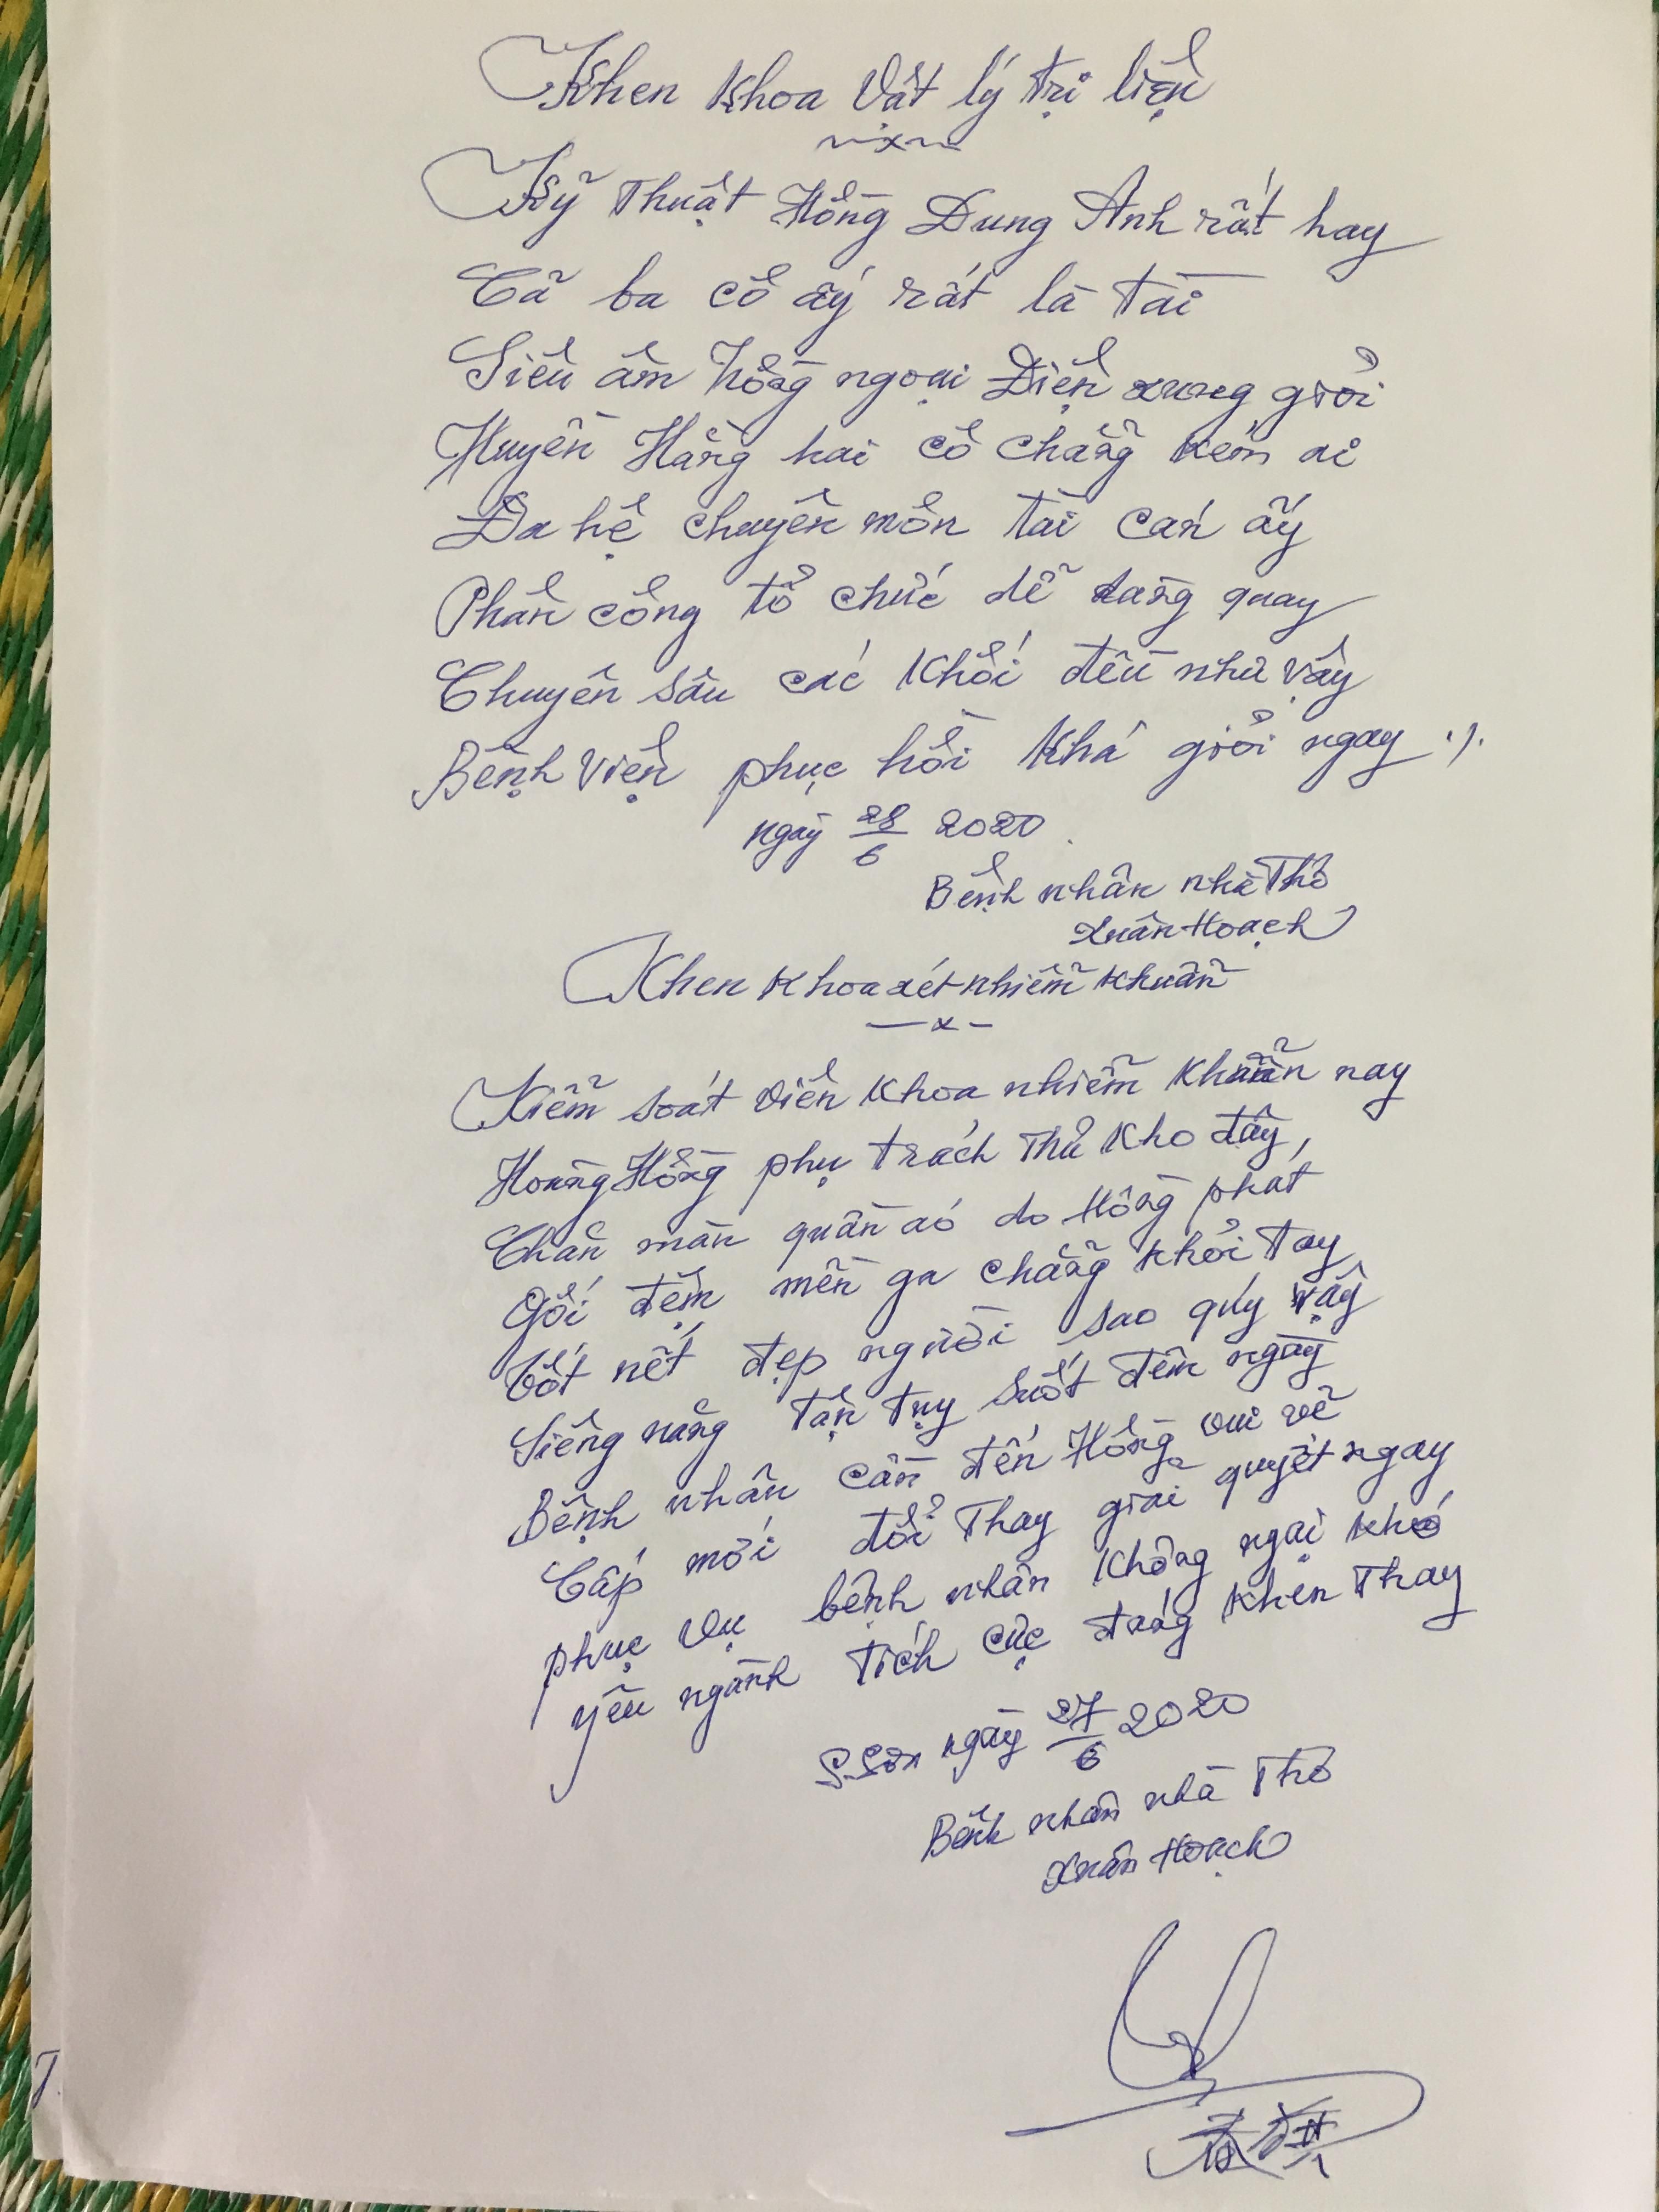 Khen Khoa Vật lý trị liệu
Kỹ Thuật Hồng Dung Anh rất hay
Cã ba cô ấy rất là tài
Siêu âm hồng ngoại Điện xung giỏi
Huyền Hằng hai cô chẵng kém ai
Đa hệ chuyên môn tài cán ấy
Phân công tổ chức dễ dàng quay
Chuyên sâu các Khối đều như vậy
Bệnh viện phục hồi Khá giỏi ngay ./.
ngày 28/6 2020
Bệnh nhân nhà Thơ
Xuân Hoạch
Khen Khoa xét nhiễm khuẫn
—x—
Kiễm soát viên Khoa nhiễm Khuẫn nay
Hoàng Hồng phụ trách Thủ Kho đây
Chăn màn quần áo do Hồng phát
Gối đệm mền ga chẵng khỏi tay
Tốt nết đẹp người sao quý vậy
Siêng năng tận tụy suốt đêm ngày
Bệnh nhân cần đến Hồng vui vẽ
Cấp mới đổi Thay giãi quyết ngay
phục vụ bệnh nhân Không ngại khó
yêu ngành tích cực đáng khen Thay
S.Sơn ngày 27/6 2020
Bệnh nhân nhà Thơ
Xuân Hoạch